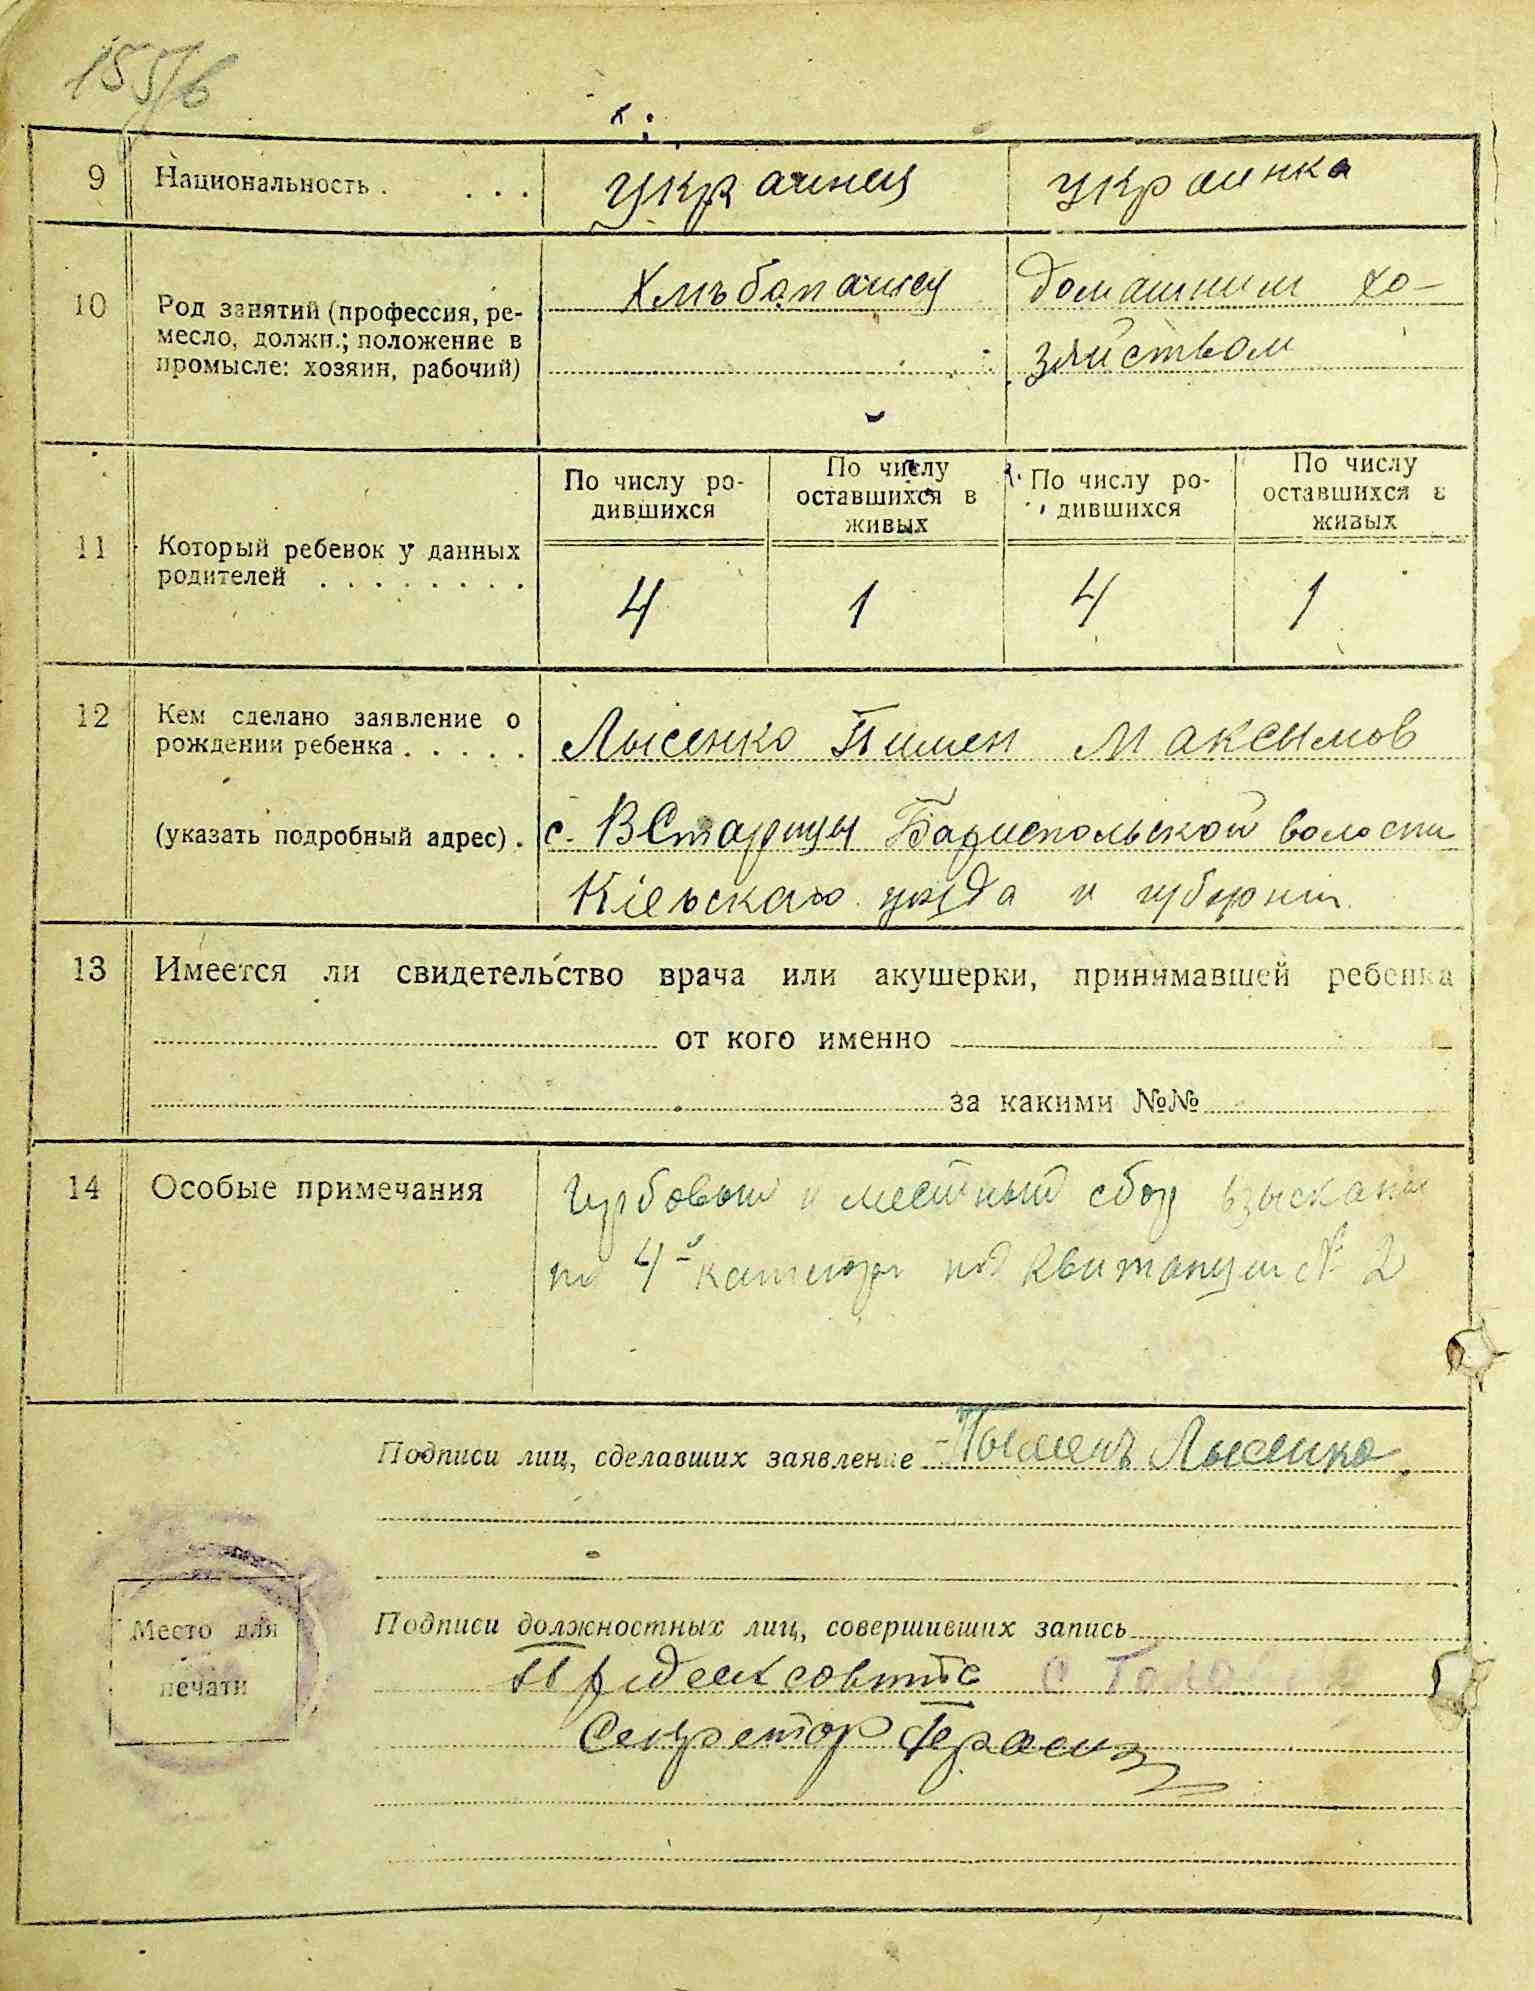 155/б
9 Национальность . . . . украинец украинка
10 Род занятий (профессия, ре-
месло, должн.; положение в
промысле: хозяин, рабочий)
Хлѣбопашец
домашним хо-
зяйством
11 Который ребенок у данных
родителей . . . . . . . .
По числу ро-
дившихся
По числу
оставшихся в
живых
По числу ро-
дившихся
По числу
оставшихся в
живых
4 1 4 1
12 Кем сделано заявление о
рождении ребенка . . . . .
(указать подробный адрес) .
Лысенко Пимен Максимов
с. ВСтарицы Бариспольской волости
Кіевскаго уезда и губерніи
13 Имеется ли свидетельство врача или акушерки, принимавшей ребенка
от кого именно
за какими №№
14 Особые примечания
Гербовый и местный сбор взысканы
по 4й категори под квитанции № 2
Подписи лиц, сделавших заявление Пыменъ Лысенко
Подписи должностных лиц, совершивших запись
Место для
печати
Секретар